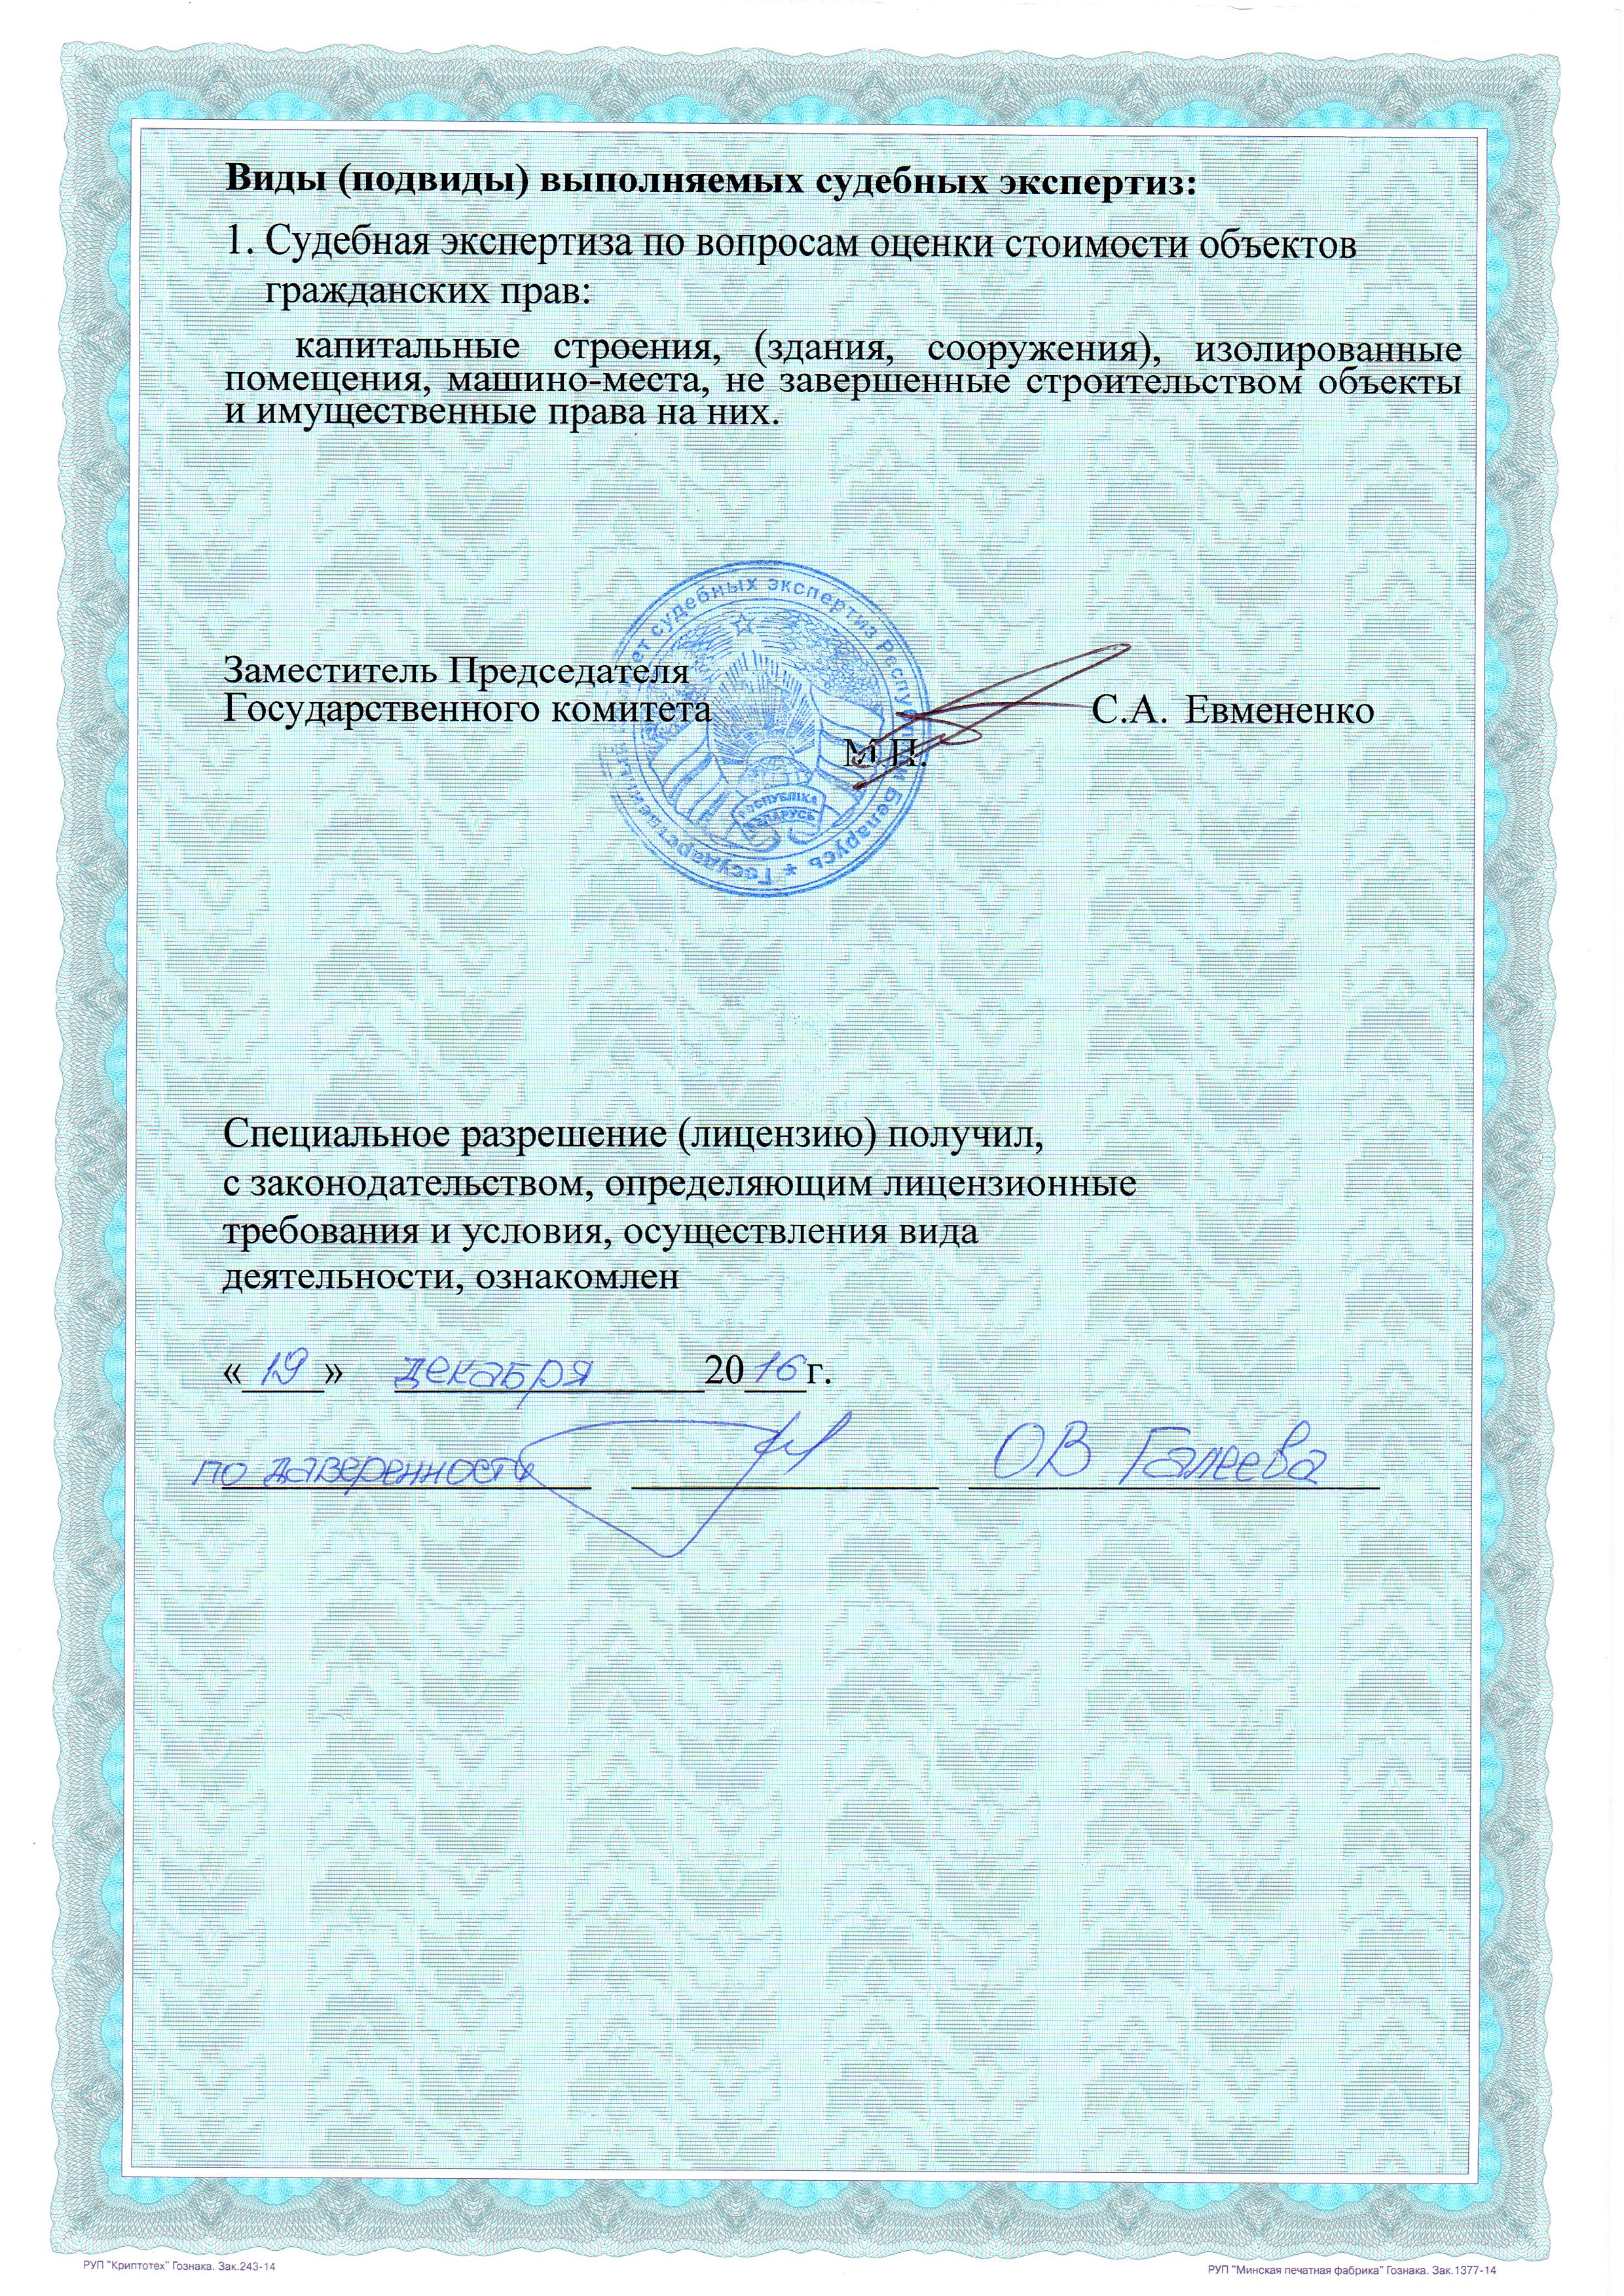 Виды (подвиды) выполняемых судебных экспертиз:
1. Судебная экспертиза по вопросам оценки стоимости объектов
гражданских прав:
капитальные строения, (здания, сооружения), изолированные
помещения, машино-места, не завершенные строительством объекты
и имущественные права на них.
Заместитель Председателя
Государственного комитета
С.А. Евмененко
М.П.
судебных экспертиз Республики Беларусь * Государственный
РЭСПУБЛІКА
БЕЛАРУСЬ
Специальное разрешение (лицензию) получил,
с законодательством, определяющим лицензионные
требования и условия, осуществления вида
деятельности, ознакомлен
«19» декабря 2016г.
по даверенности ОВ Галеева
РУП "Криптотех" Гознака. Зак.243-14
РУП "Минская печатная фабрика" Гознака. Зак.1377-14